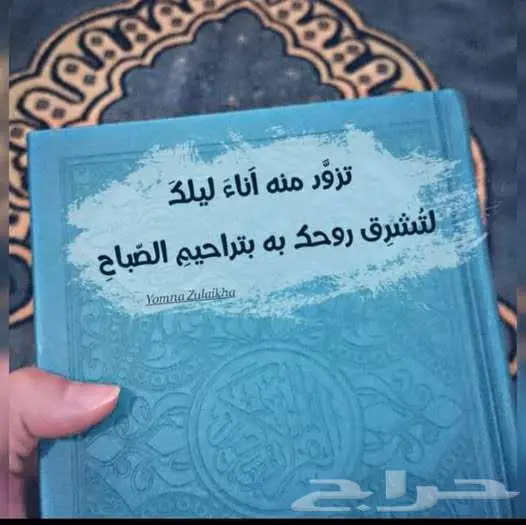 تزوَّد منه اَناءَ ليلكَ
لتُشرِق روحك به بتراحيمِ الصّباحِ
Yomna Zulaikha
حراج